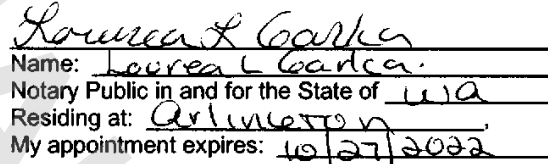 Name: Lourea L
Notary Public in and for the State of WA
Residing at: Arlington,
My appointment expires: 10/27/2022